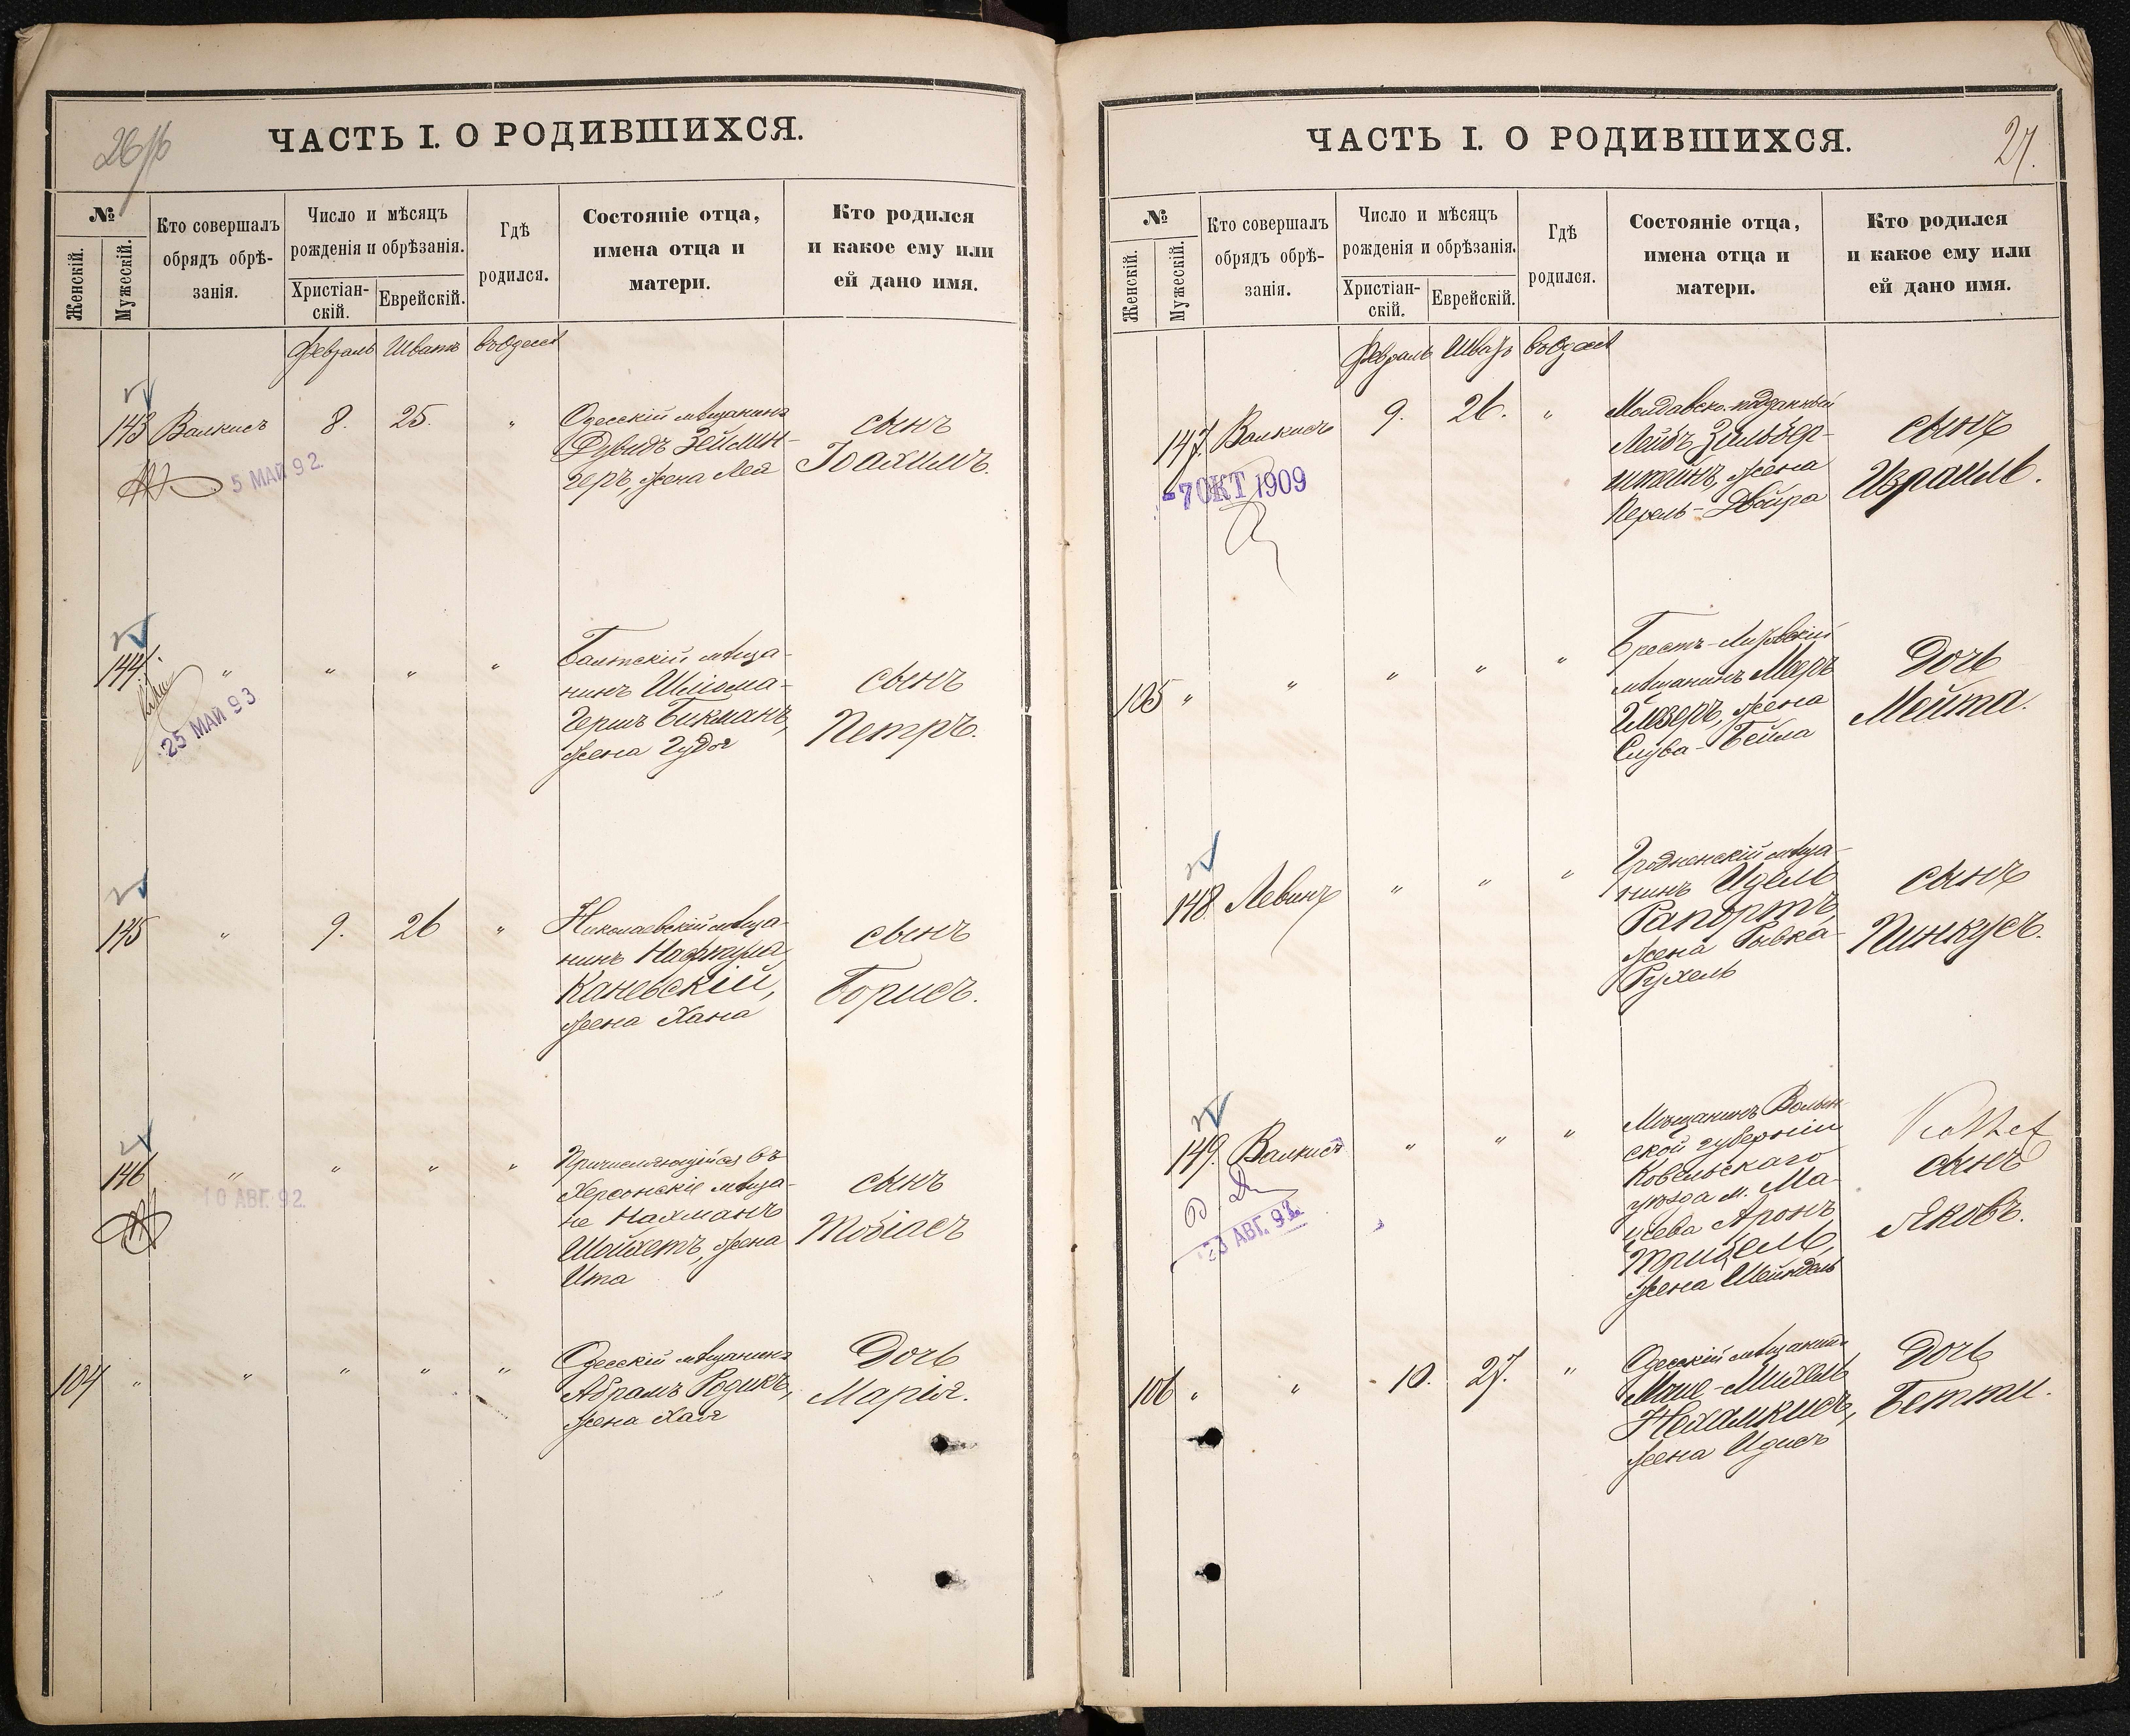 26/об
ЧАСТЬ I. О РОДИВШИХСЯ.
№
Женскій.
Мужескій.
Кто совершалъ
обрядъ обрѣ-
занія.
Число и мѣсяцъ
рожденія и обрѣзанія.
Христіан-
скій.
Еврейскій.
Гдѣ
родился.
Состояніе отца,
имена отца и
матери.
Кто родился
и какое ему или
ей дано имя.
Февраль Шватъ въ Одессѣ
143 Валкисъ 8. 25. "
Одесскій мѣщанинъ
Дувидъ Зейлин-
геръ, жена Лея
сынъ
Іоахимъ.
5 МАЙ 92.
144. " " " "
Балтскій мѣща-
нинъ Шліома-
Гершъ Бикманъ,
жена Гудя
сынъ
Петръ.
25 МАЙ 93
145 " 9. 26 "
Николаевскій мѣща-
нинъ Нафтула
Каневскій,
жена Хана
сынъ
Борисъ.
146 " " " "
Причисляющійся въ
Херсонскіе мѣща-
не Нахманъ
Шойхетъ, жена
Ита
сынъ
Тобіасъ
10 АВГ. 92.
104 " " " " "
Одесскій мѣщанинъ
Абрамъ Родикъ,
жена Хая
Дочь
Марія.
ЧАСТЬ I. О РОДИВШИХСЯ.
27.
№
Женскій.
Мужескій.
Кто совершалъ
обрядъ обрѣ-
занія.
Число и мѣсяцъ
рожденія и обрѣзанія.
Христіан-
скій.
Еврейскій.
Гдѣ
родился.
Состояніе отца,
имена отца и
матери.
Кто родился
и какое ему или
ей дано имя.
Февраль Шватъ въ Одессѣ
147. Валкисъ 9. 26. "
Молдавско-подданный
Лейбъ Зильбер-
штейнъ, жена
Перель-Двойра
сынъ
Израиль.
-7 ОКТ 1909
105 " " " " "
Брестъ-Литовскій
мѣщанинъ Мееръ
Глезеръ, жена
Слува-Бейла
Дочь
Мейта.
148 Левинъ " " "
Гродненскій мѣща-
нинъ Идель
Рапортъ,
жена Рывка-
Рухель
сынъ
Пинкусъ.
149. Валкисъ " " "
Мѣщанинъ Волын-
ской губерніи
Ковельскаго
уѣзда м. Ма-
цѣева Аронъ
жена Шейндель
сынъ
Яковъ.
АВГ. 92
106 " " 10. 27. "
Одесскій мѣщанинъ
Моше-Михель
Нехамкисъ,
жена Идисъ
Дочь
Бетти.